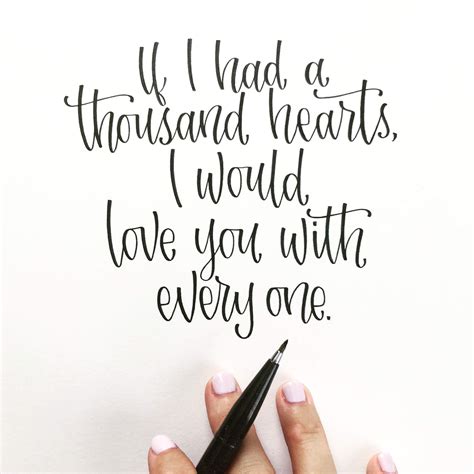 If I had a
thousand hearts,
I would
love you with
every one.